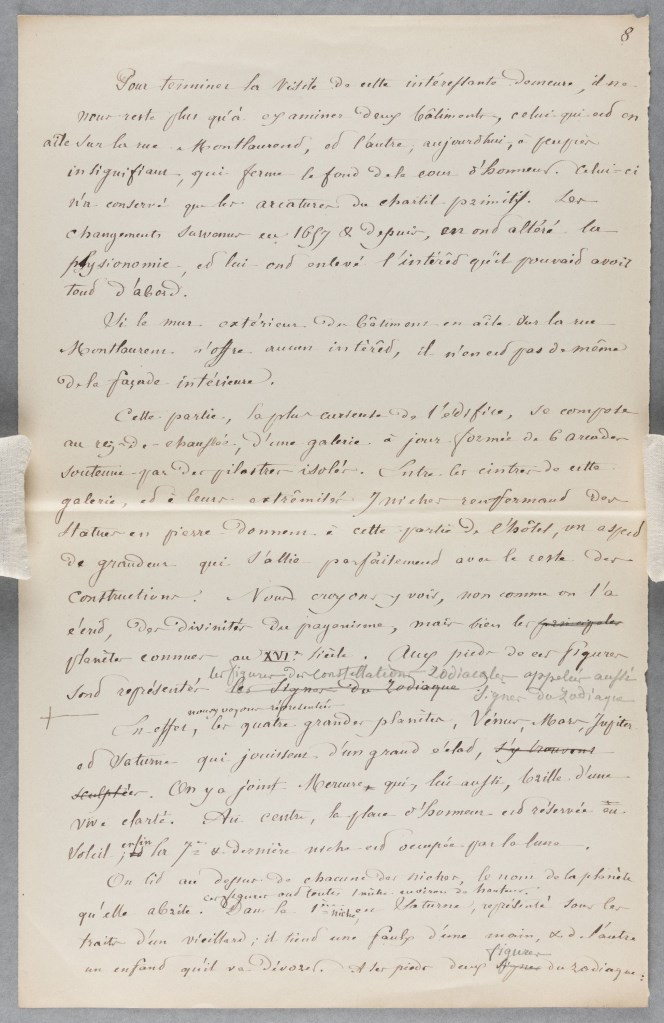 8
Pour terminer la visite de cette intéressante demeure, il ne
nous reste plus qu'à examiner deux bâtiments, celui qui est en
aîle sur la rue Montlaurent, et l'autre, aujourdhui, à peu près
insignifiant, qui ferme le fond de la cour d'honneur. Celui-ci
n'a conservé que les arcatures du chastil primitif. Les
changements survenus en 1657 & depuis, en ont altéré la
physionomie, et lui ont enlevé l'intérêt qu'il pouvait avoir
tout d'abord.
Si le mur extérieur du bâtiment en aîle sur la rue
Montlaurent n'offre aucun intérêt, il n'en est pas de même
de la façade intérieure.
Cette partie, la plus curieuse de l'édifice, se compose
au rez-de-chaussée, d'une galerie à jour formée de 6 arcades
soutenue par des pilastres isolés. Entre les cintres de cette
galerie, et à leurs extrêmités 7 niches renfermant des
statues en pierre donnent à cette partie de l'hôtel, un aspect
de grandeur qui s'allie parfaitement avec le reste des
constructions. Nous croyons y voir, non comme on l'a
écrit, des divinités du paganisme, mais bien les principales
planètes connues au XVIe siècle. Aux pieds de ces figures
les figures des constellations Zodiacales appelés aussi
sont représentés les signes du Zodiaque signes du Zodiaque
nous y voyons représentées
En effet, les quatre grandes planètes, Vénus, Mars, Jupiter
et Saturne qui jouissent d'un grand éclat, s'y trouvent
sculptées. On y a joint Mercure, qui, lui aussi, brille d'une
vive clarté. Au centre, la place d'honneur est réservée au
Soleil; enfin et la 7me & dernière niche est occupée par la lune.
On lit au dessus de chacune des niches, le nom de la planète
ces figures ont toutes 1 mètre environ de hauteur.
qu'elle abrite. Dans la 1ère niche, est Saturne, représenté sous les
traits d'un vieillard; il tient une faulx d'une main, & de l'autre
figures
un enfant qu'il va dévorer. A ses pieds deux signes du zodiaque: